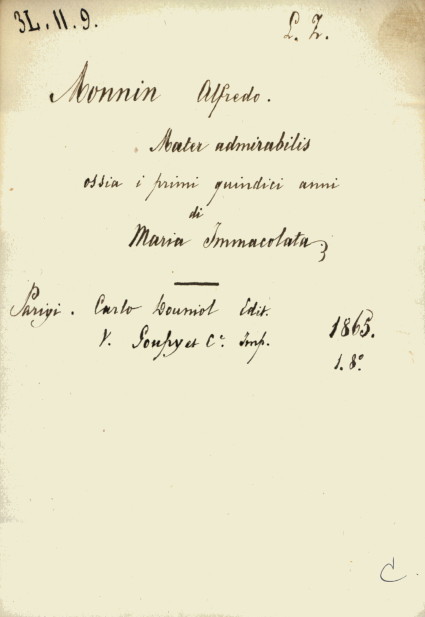 3L. 11. 9.
L. Z.
Monnin Alfredo.
Mater admirabilis
ossia i primi quindici anni
di
Maria Immacolata;
Parigi. Carlo Douniol Edit.
V. Goupy et C.e Imp. 1865.
1. 8.o
C